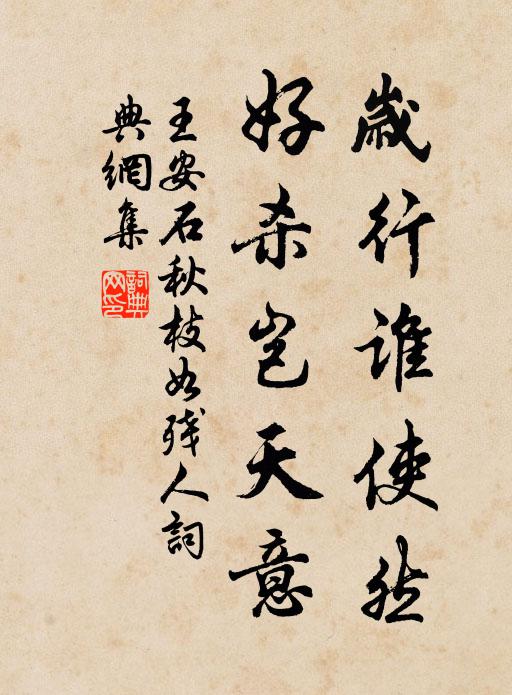 歲行誰使然
好杀岂天意
王安石秋枝如殘人詞
典網集
詞典网印